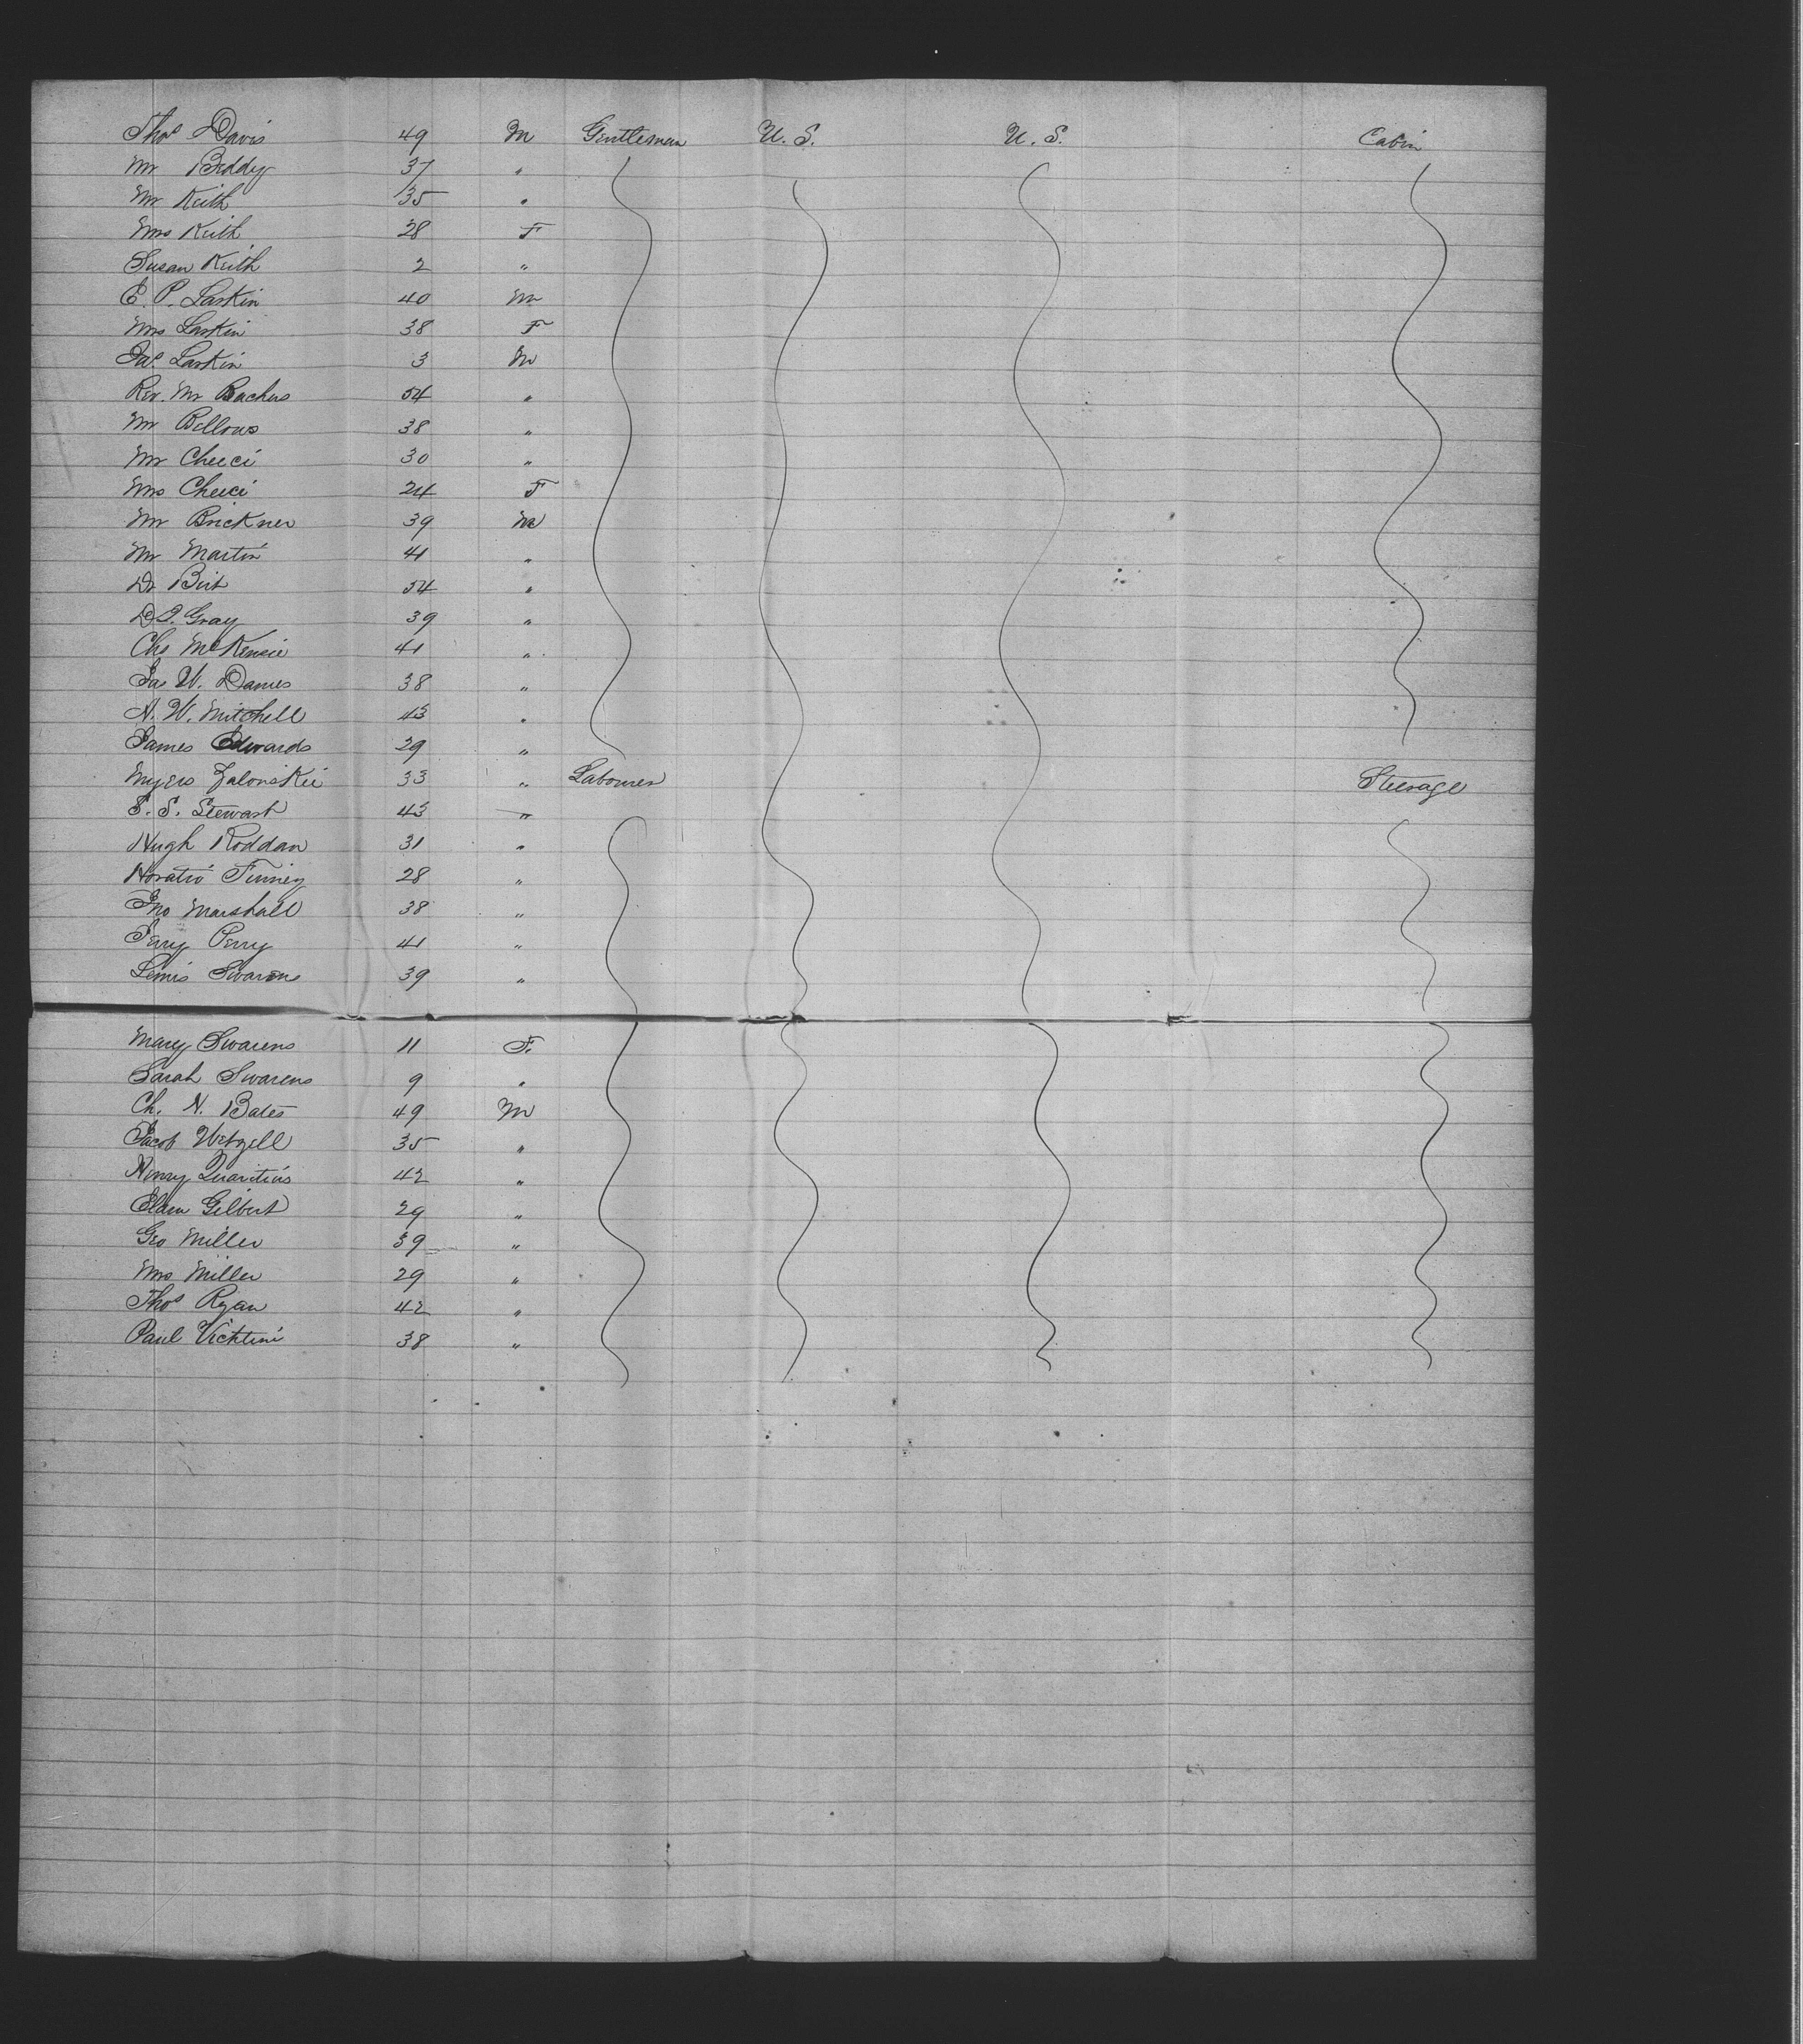 Thos Davis 49 M Gentleman U. S. U. S. Cabin
Mr Beddy 37 "
Mr Keith 35 "
Mrs Keith 28 F
Susan Keith 2 "
E. P. Larkin 40 M
Mrs Larkin 38 F
Jas. Larkin 3 M
Rev. Mr Bachus 54 "
Mr Bellows 38 "
Mr Cheeci 30 "
Mrs Cheeci 24 F
Mr Brickner 39 M
Mr Martin 41 "
Dr Birt 54 "
Gray 39 "
Chs McKensie 41 "
Jas W. Danies 38 "
N. W. Mitchell 43 "
James Edwards 29 "
Myers 33 " Labourer Steerage
S. S. Stewart 43 "
Hugh Roddan 31 "
Horatio Finney 28 "
Jno Marshall 38 "
Perry 41 "
Lewis Swarens 39 "
Mary Swarens 11 F.
Sarah Swarens 9 "
Ch. N. Bates 49 M
Jacob Wetzell 35 "
Henry 42 "
Elam Gilbert 29 "
Geo Miller 39 "
Mrs Miller 29 "
Thos Ryan 42 "
Paul Vichtini 38 "